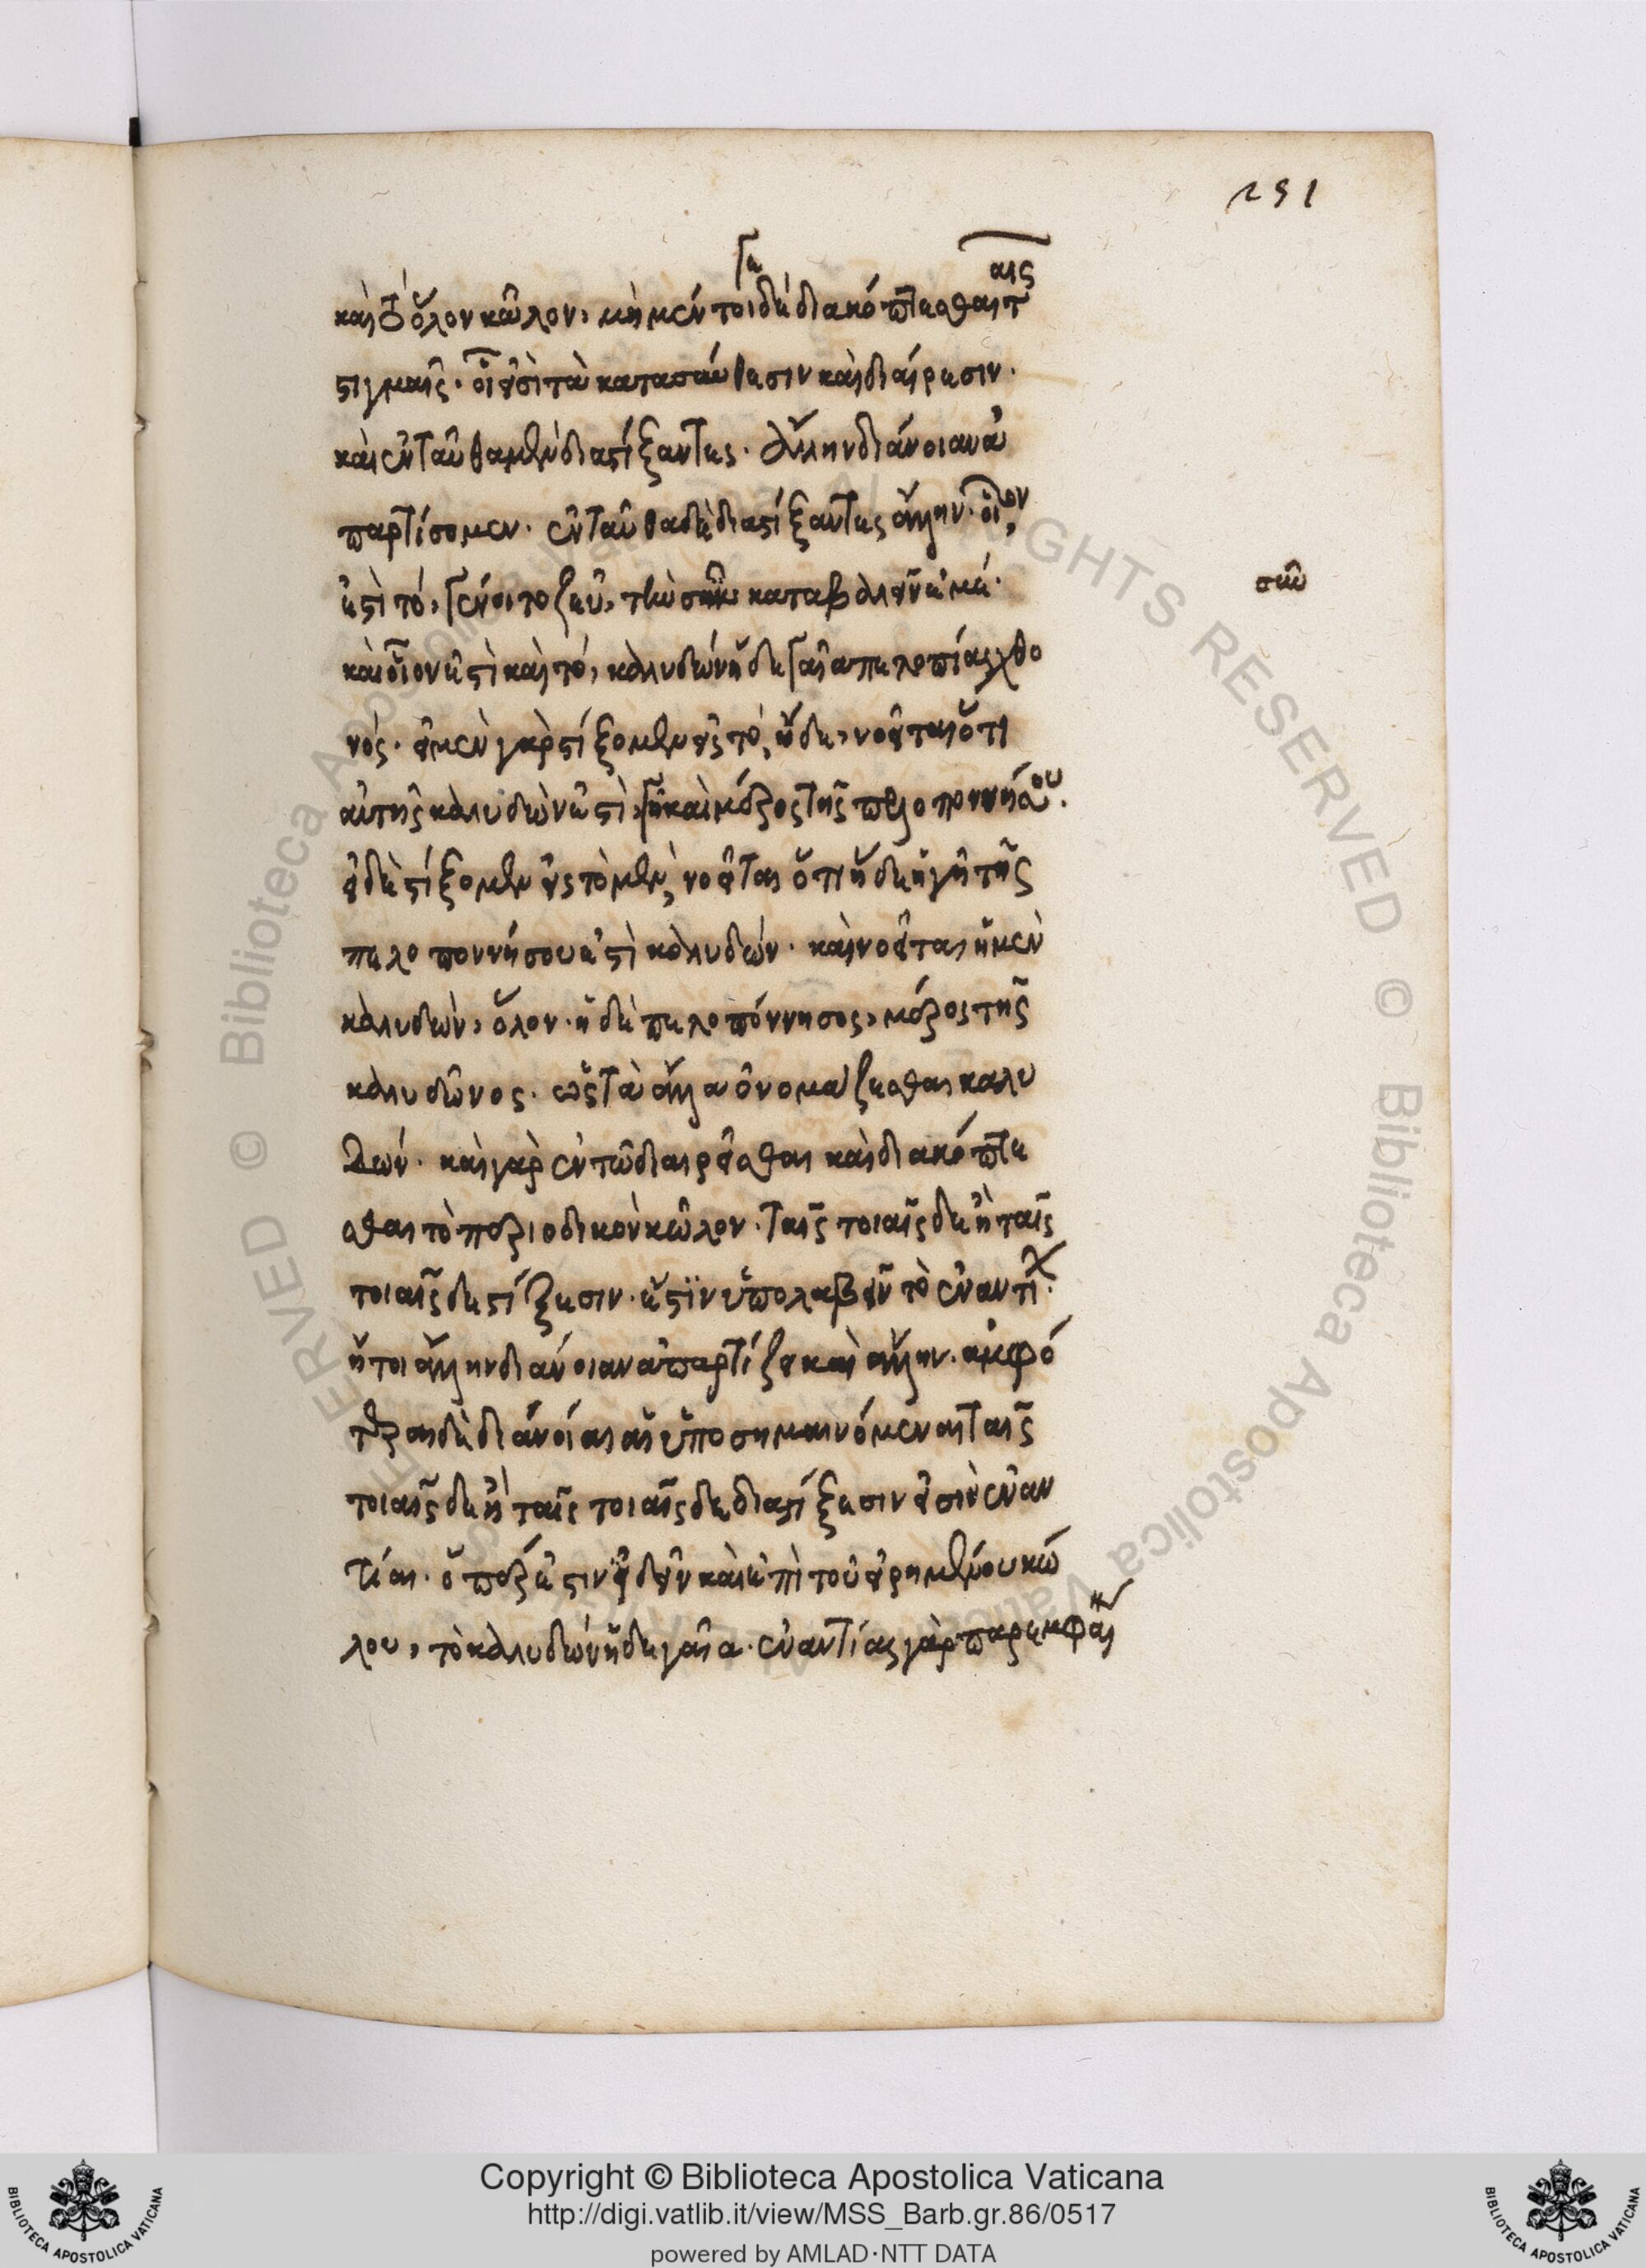 251
καὶ τὸ ὅλον κῶλον, μὴ μέντοι γε δὴ διακόπτεσθαι ταῖς
στιγμαῖς. οἷς ἐστὶ τὰ κατὰ σύνθεσιν καὶ διαίρεσιν.
καὶ ἐνταῦθα μὲν διαστίξαντες. ἄλλην διάνοιαν ἀ
παρτίσομεν. ἐνταῦθα δὲ διαστίξαντες ἄλλην. οἷον
ἐστὶ τό, γένοιτο ζεῦ, τὴν σῦν καταβαλεῖν ἐμέ.
σῦν
καὶ οἷόν ἐστι καὶ τό, καλυδὼν ἥδε γαῖα πελοπίας χθο
νός. εἰ μὲν γὰρ στίξομεν εἰς τὸ, ἥδε, νοεῖται ὅτι
αὐτὴ καλυδών ἐστὶ, γῆ καὶ μέρος τῆς πελοποννήσου.
εἰ δὲ στίξομεν εἰς τὸ μὲν, νοεῖται ὅτι ἥδε ἡ γῆ τῆς
πελοποννήσου ἐστὶ καλυδών. καὶ νοεῖται ἡ μὲν
καλυδὼν, ὅλον. ἡ δὲ πελοπόννησος, μέρος τῆς
καλυδῶνος. ὥστε τὰ ἄλλα ὀνομάζεσθαι καλυ
δών. καὶ γὰρ ἐν τῷ διαιρεῖσθαι καὶ διακόπτε
σθαι τὸ περιοδικὸν κῶλον. ταῖς τοιαῖσδε ἢ ταῖς
τοιαῖσδε στίξεσιν. ἔστιν ὑπολαβεῖν τὸ ἐναντί.
ἤτοι ἄλλην διάνοιαν ἀπαρτίζει καὶ ἄλλην. ἀμφό
τεραι δὲ διάνοιαι αἱ ὑποσημαινόμεναι ταῖς
τοιαῖσδε ἢ ταῖς τοιαῖσδε διαστίξεσιν εἰσὶν ἐναν
τίαι. ὅπερ ἐστιν ἰδεῖν καὶ ἐπὶ τοῦ εἰρημένου κώ
λου, τὸ καλυδὼν ἥδε γαῖα. ἐναντίας γὰρ παρεμφαί
Copyright © Biblioteca Apostolica Vaticana
http://digi.vatlib.it/view/MSS_Barb.gr.86/0517
powered by AMLAD·NTT DATA